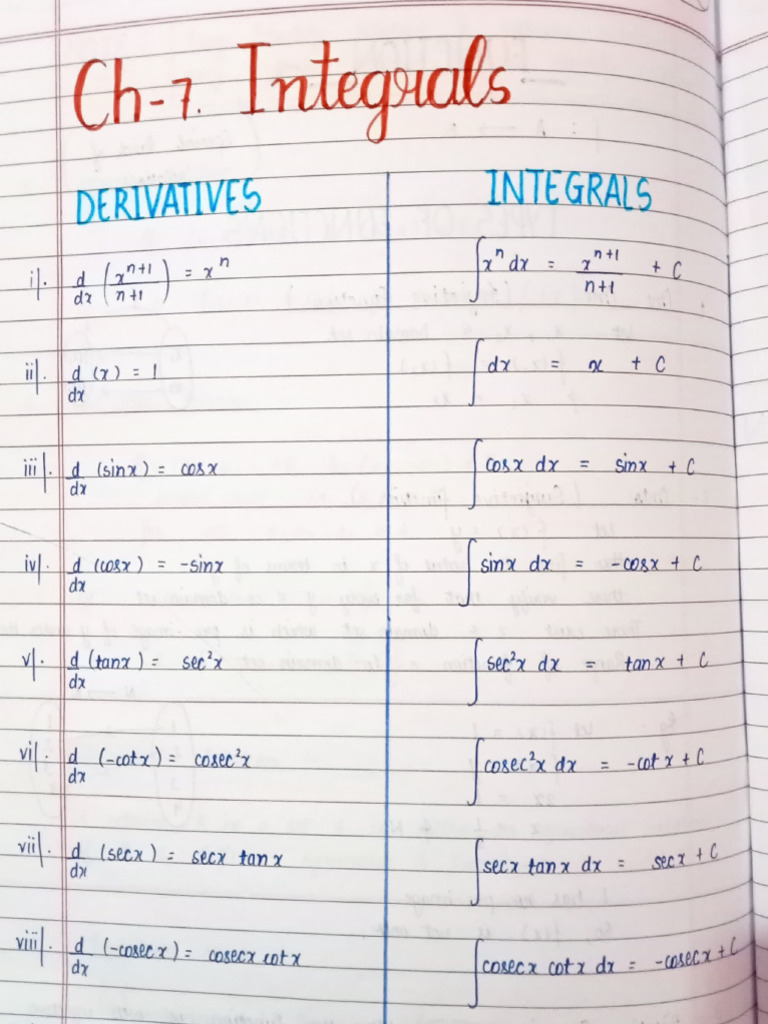 Ch-7. Integrals
DERIVATIVES INTEGRALS
i). d/dx (x^(n+1)/(n+1)) = x^n ∫x^n dx = x^(n+1)/(n+1) + C
ii). d/dx (x) = 1 ∫dx = x + C
iii). d/dx (sinx) = cosx ∫cosx dx = sinx + C
iv). d/dx (cosx) = -sinx ∫sinx dx = -cosx + C
v). d/dx (tanx) = sec²x ∫sec²x dx = tanx + C
vi). d/dx (-cotx) = cosec²x ∫cosec²x dx = -cotx + C
vii). d/dx (secx) = secx tanx ∫secx tanx dx = secx + C
viii). d/dx (-cosecx) = cosecx cotx ∫cosecx cotx dx = -cosecx + C